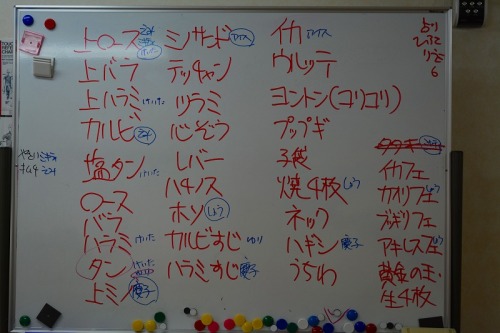 上ロース
上バラ
上ハラミ けいた
カルビ
塩タン けいた
ロース
バラ
ハラミ けいた
タン けいた
上ミノ 慶子
シサンド アイス
テッチャン
ツラミ
心ぞう
レバー
ハチノス
ホソ
カルビすじ ゆり
ハラミすじ 慶子
イカ アイス
ウルッテ
ヨントン(コリコリ)
プップギ
子袋
焼4枚
ネック
ハギシ 慶子
うちわ
イカフェ
カスリフェ
ブギリフェ
アキレスフェ
黄金の玉
生4枚
6